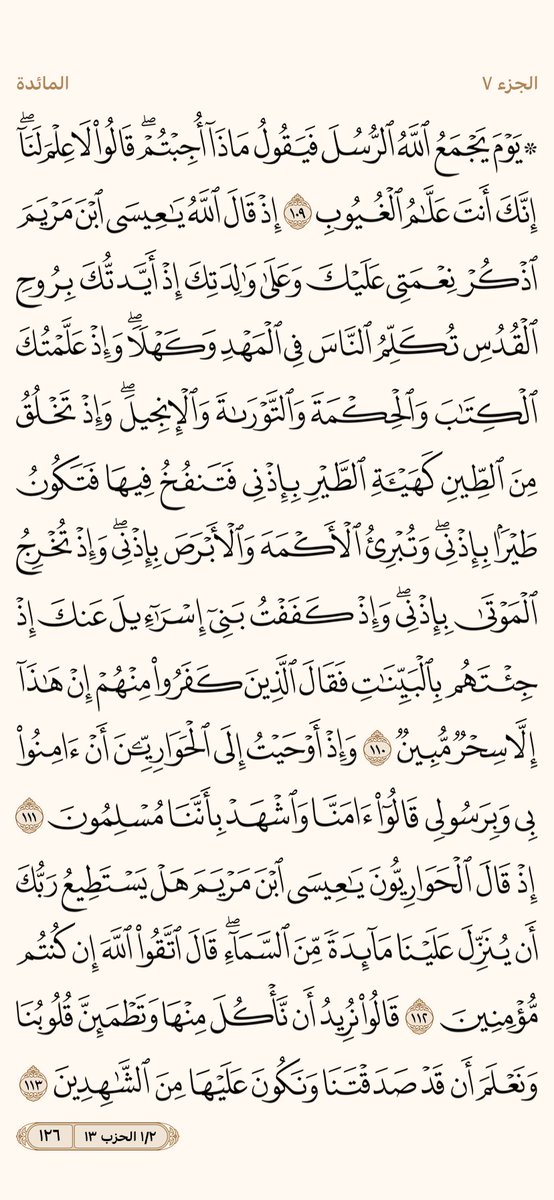 الجزء ٧ المائدة
۞ يَوۡمَ يَجۡمَعُ ٱللَّهُ ٱلرُّسُلَ فَيَقُولُ مَاذَآ أُجِبۡتُمۡۖ قَالُواْ لَا عِلۡمَ لَنَآۖ
إِنَّكَ أَنتَ عَلَّٰمُ ٱلۡغُيُوبِ ١٠٩ إِذۡ قَالَ ٱللَّهُ يَٰعِيسَى ٱبۡنَ مَرۡيَمَ
ٱذۡكُرۡ نِعۡمَتِي عَلَيۡكَ وَعَلَىٰ وَٰلِدَتِكَ إِذۡ أَيَّدتُّكَ بِرُوحِ
ٱلۡقُدُسِ تُكَلِّمُ ٱلنَّاسَ فِي ٱلۡمَهۡدِ وَكَهۡلٗاۖ وَإِذۡ عَلَّمۡتُكَ
ٱلۡكِتَٰبَ وَٱلۡحِكۡمَةَ وَٱلتَّوۡرَىٰةَ وَٱلۡإِنجِيلَۖ وَإِذۡ تَخۡلُقُ
مِنَ ٱلطِّينِ كَهَيۡـَٔةِ ٱلطَّيۡرِ بِإِذۡنِي فَتَنفُخُ فِيهَا فَتَكُونُ
طَيۡرَۢا بِإِذۡنِيۖ وَتُبۡرِئُ ٱلۡأَكۡمَهَ وَٱلۡأَبۡرَصَ بِإِذۡنِيۖ وَإِذۡ تُخۡرِجُ
ٱلۡمَوۡتَىٰ بِإِذۡنِيۖ وَإِذۡ كَفَفۡتُ بَنِيٓ إِسۡرَٰٓءِيلَ عَنكَ إِذۡ
جِئۡتَهُم بِٱلۡبَيِّنَٰتِ فَقَالَ ٱلَّذِينَ كَفَرُواْ مِنۡهُمۡ إِنۡ هَٰذَآ
إِلَّا سِحۡرٞ مُّبِينٞ ١١٠ وَإِذۡ أَوۡحَيۡتُ إِلَى ٱلۡحَوَارِيِّـۧنَ أَنۡ ءَامِنُواْ
بِي وَبِرَسُولِي قَالُوٓاْ ءَامَنَّا وَٱشۡهَدۡ بِأَنَّنَا مُسۡلِمُونَ ١١١
إِذۡ قَالَ ٱلۡحَوَارِيُّونَ يَٰعِيسَى ٱبۡنَ مَرۡيَمَ هَلۡ يَسۡتَطِيعُ رَبُّكَ
أَن يُنَزِّلَ عَلَيۡنَا مَآئِدَةٗ مِّنَ ٱلسَّمَآءِۖ قَالَ ٱتَّقُواْ ٱللَّهَ إِن كُنتُم
مُّؤۡمِنِينَ ١١٢ قَالُواْ نُرِيدُ أَن نَّأۡكُلَ مِنۡهَا وَتَطۡمَئِنَّ قُلُوبُنَا
وَنَعۡلَمَ أَن قَدۡ صَدَقۡتَنَا وَنَكُونَ عَلَيۡهَا مِنَ ٱلشَّٰهِدِينَ ١١٣
١/٢ الحزب ١٣ ١٢٦